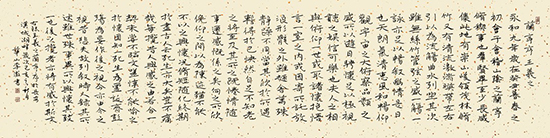 蘭亭序 王羲之
永和九年歲在癸丑暮春之
初會于會稽山陰之蘭亭
脩稧事也羣賢畢至少長咸
集此地有崇山峻領茂林脩
竹又有清流激湍暎帶左右
引以為流觴曲水列坐其次
雖無絲竹管弦之盛一觴一
詠亦足以暢敘幽情是日
也天朗氣清惠風和暢仰
觀宇宙之大俯察品類之
盛所以遊目騁懷足以極視
聽之娛信可樂也夫人之相
與俯仰一世或取諸懷抱悟
言一室之內或因寄所託放
浪形骸之外雖趣舍萬殊
靜躁不同當其欣於所遇
暫得於己快然自足不知老
之將至及其所之既倦情隨
事遷感慨係之矣向之所欣
俛仰之間以為陳迹猶不能
不以之興懷況脩短隨化終期
於盡古人云死生亦大矣豈不痛
哉每攬昔人興感之由若合一
契未嘗不臨文嗟悼不能喻之
於懷固知一死生為虛誕齊彭
殤為妄作後之視今亦由今之
視昔悲夫故列敘時人錄其所
述雖世殊事異所以興懷其致
一也後之攬者亦將有感於斯文